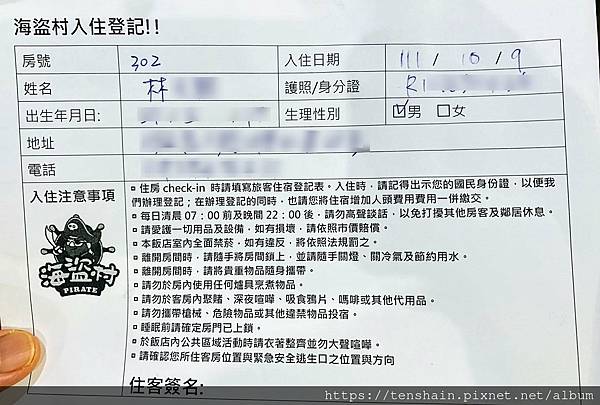 海盜村入住登記!!
房號 302 入住日期 111 / 10 / 9
姓名 林 護照/身分證 R1
出生年月日: 生理性別 ☑男 □女
地址
電話
入住注意事項
海盜村
PIRATE
▫ 住房 check-in 時請填寫旅客住宿登記表。入住時，請記得出示您的國民身份證，以便我
們辦理登記；在辦理登記的同時，也請您將住宿增加人頭費用費用一併繳交。
▫ 每日清晨 07：00 前及晚間 22：00 後，請勿高聲談話，以免打擾其他房客及鄰居休息。
▫ 請愛護一切用品及設備，如有損壞，請依照市價賠償。
▫ 本飯店室內全面禁菸，如有違反，將依照法規罰之。
▫ 離開房間時，請隨手將房間鎖上，並請隨手關燈、關冷氣及節約用水。
▫ 離開房間時，請將貴重物品隨身攜帶。
▫ 請勿於房內使用任何爐具烹煮物品。
▫ 請勿於客房內聚賭、深夜喧嘩、吸食鴉片、嗎啡或其他代用品。
▫ 請勿攜帶槍械、危險物品或其他違禁物品投宿。
▫ 睡眠前請確定房門已上鎖。
▫ 於飯店內公共區域活動時請衣著整齊並勿大聲喧嘩。
▫ 請確認您所住客房位置與緊急安全逃生口之位置與方向
住客簽名:
https://tenshain.pixnet.net/album